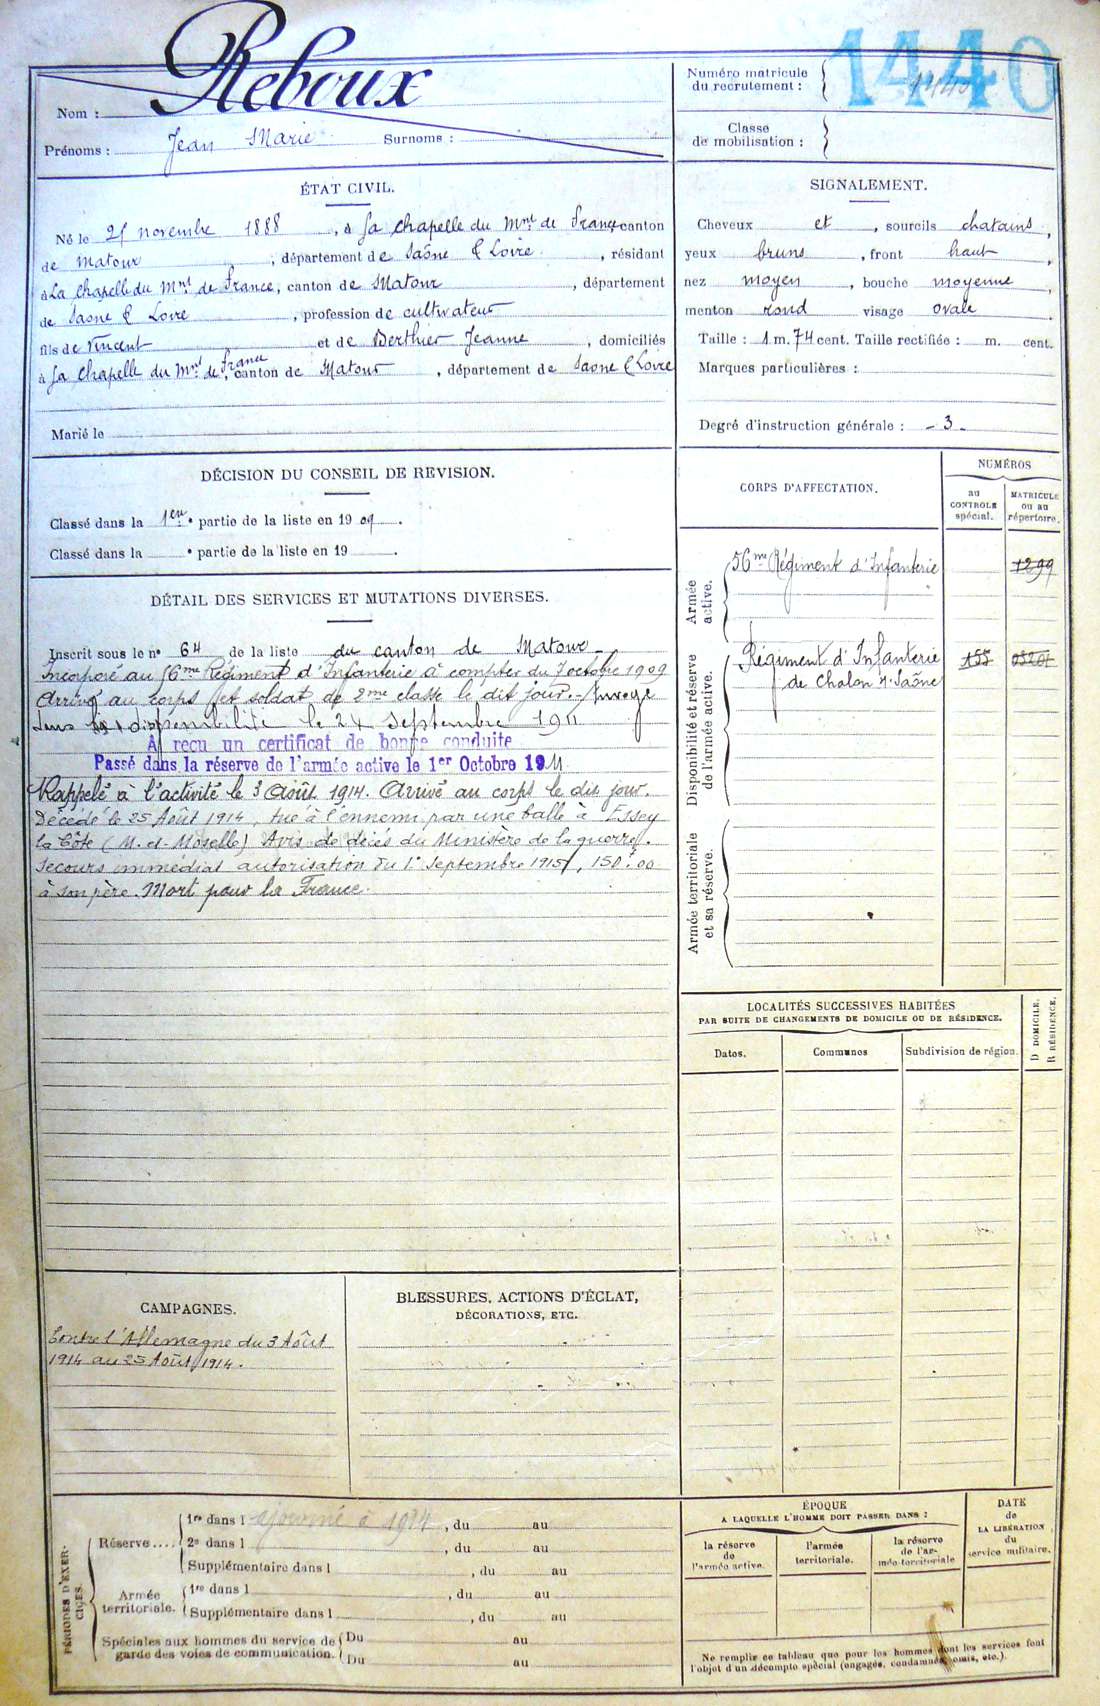 Nom : Reboux
Prénoms : Jean Marie Surnoms :
Numéro matricule du recrutement : 1440
1440
Classe de mobilisation :
ÉTAT CIVIL.
Né le 25 novembre 1888, à La Chapelle du Mnt de France canton
de Matour, département de Saône & Loire, résidant
à La Chapelle du Mnt de France, canton de Matour, département
de Saone & Loire, profession de cultivateur
fils de Vincent et de Berthier Jeanne, domiciliés
à La Chapelle du Mnt de France, canton de Matour, département de Saone & Loire
Marié le
SIGNALEMENT.
Cheveux et, sourcils chatains,
yeux bruns, front haut,
nez moyen, bouche moyenne,
menton rond visage ovale
Taille : 1 m. 74 cent. Taille rectifiée : m. cent.
Marques particulières :
Degré d'instruction générale : - 3 -
DÉCISION DU CONSEIL DE REVISION.
Classé dans la 1ere partie de la liste en 1909.
Classé dans la e partie de la liste en 19 .
DÉTAIL DES SERVICES ET MUTATIONS DIVERSES.
Inscrit sous le n° 64 de la liste du canton de Matour
Incorporé au 56me Régiment d'Infanterie à compter du 7 octobre 1909
Arrivé au corps et soldat de 2me classe le dit jour. - Envoyé
dans la disponibilité le 24 Septembre 1911
A reçu un certificat de bonne conduite
Passé dans la réserve de l'armée active le 1er Octobre 1911
Rappelé à l'activité le 3 Août 1914. Arrivé au corps le dit jour.
Décédé le 25 Août 1914, tué à l'ennemi par une balle à Essey
la Côte (M.-et-Moselle) Avis de décès du Ministère de la guerre.
Secours immédiat autorisation du 1er Septembre 1915, 150f.00
à son père. Mort pour la France.
CORPS D'AFFECTATION.
NUMÉROS
au CONTROLE spécial.
MATRICULE ou au répertoire.
Armée active.
56me Régiment d'Infanterie 1299
Disponibilité et réserve de l'armée active.
Régiment d'Infanterie 155
de Chalon s/ Saône
Armée territoriale et sa réserve.
LOCALITÉS SUCCESSIVES HABITÉES
PAR SUITE DE CHANGEMENTS DE DOMICILE OU DE RÉSIDENCE.
Dates. Communes Subdivision de région.
D DOMICILE.
R RÉSIDENCE.
CAMPAGNES.
Contre l'Allemagne du 3 Août
1914 au 25 Août 1914.
BLESSURES, ACTIONS D'ÉCLAT,
DÉCORATIONS, ETC.
PÉRIODES D'EXERCICES.
Réserve....
1re dans l ajourné à 1914, du au
2e dans l , du au
Supplémentaire dans l , du au
Armée territoriale.
1re dans l , du au
Supplémentaire dans l , du au
Spéciales aux hommes du service de garde des voies de communication.
Du au
Du au
ÉPOQUE
A LAQUELLE L'HOMME DOIT PASSER DANS :
la réserve de l'armée active.
l'armée territoriale.
la réserve de l'armée territoriale
DATE de LA LIBÉRATION du service militaire.
Ne remplir ce tableau que pour les hommes dont les services font
l'objet d'un décompte spécial (engagés, condamnés, omis, etc.).